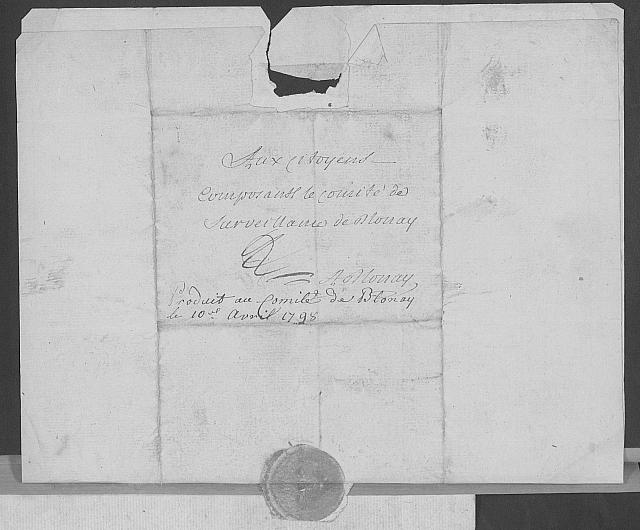 Aux citoyens
composants le comité de
surveillance de Blonay
A Blonay
Produit au Comité de Blonay
le 10me Avril 1798